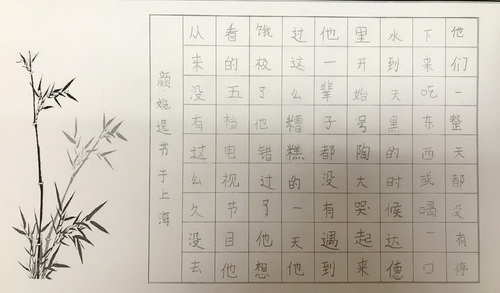 他们一整天都没有停
下来吃东西或喝一口
水到天黑的时候达德
里开始号陶大哭起来
他一辈子都没有遇到
过这么糟糕的一天他
饿极了他错过了他想
看的五档电视节目他
从来没有过么久没去
颜书于上海